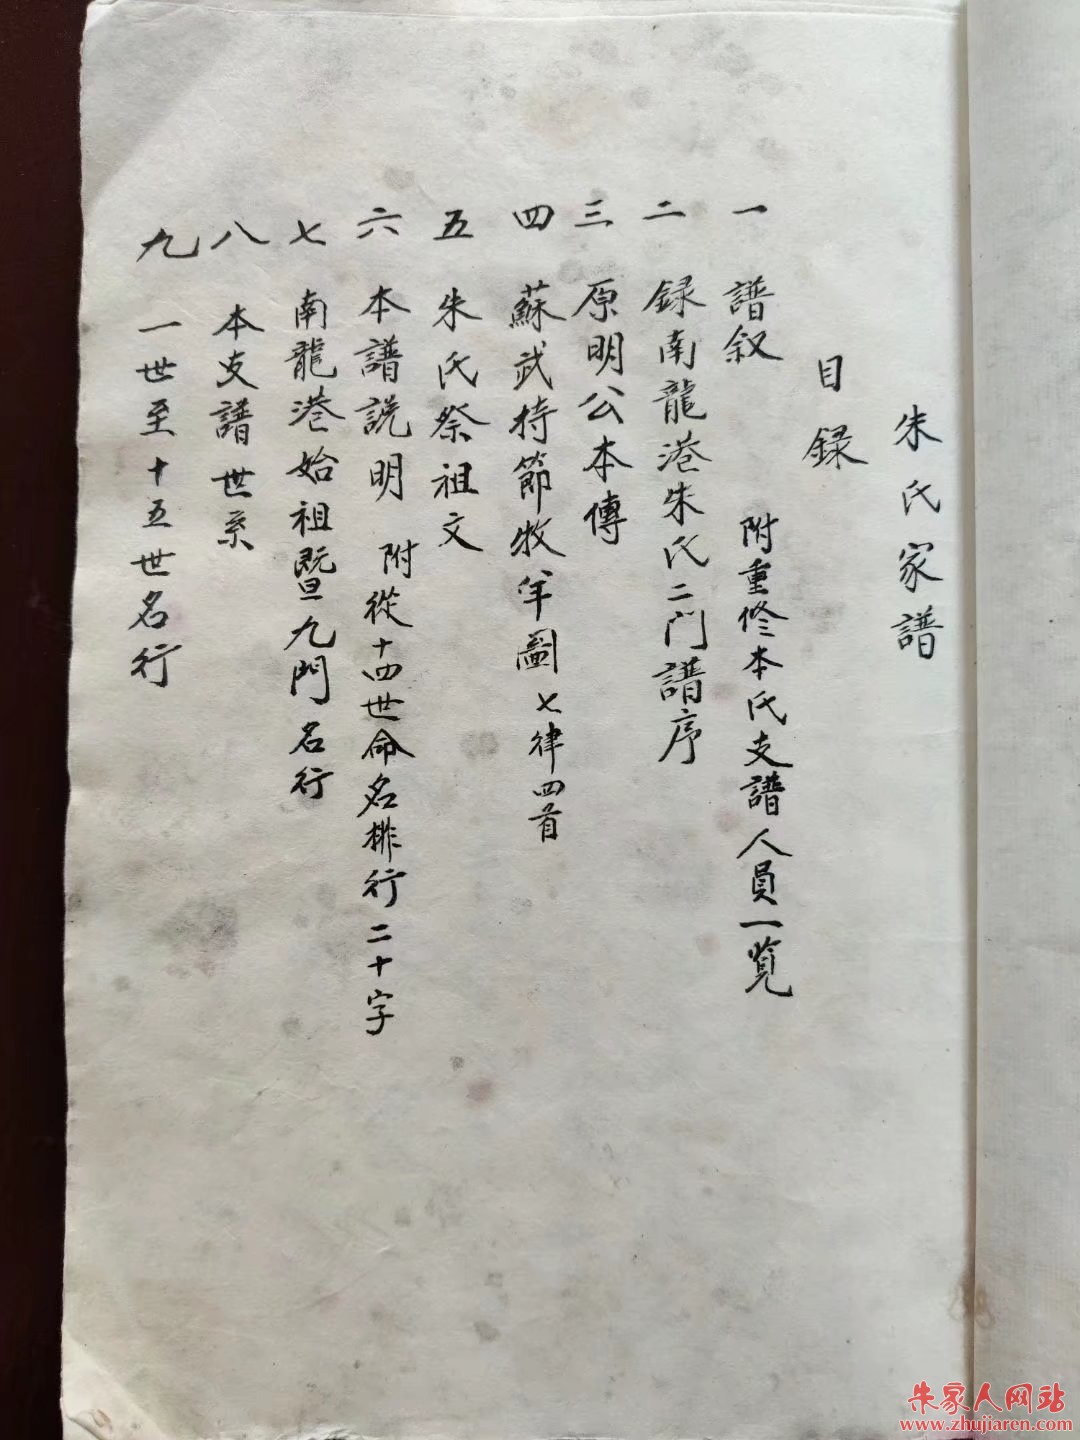 朱氏家譜
目録
一 譜叙 附重修本氏支譜人員一覧
二 録南龍港朱氏二门譜序
三 原明公本傳
四 蘇武持節牧羊圖七律四首
五 朱氏祭祖文
六 本譜説明 附從十四世命名排行二十字
七 南龍港始祖暨九門名行
八 本支譜世系
九 一世至十五世名行
朱家人网站
www.zhujiaren.com